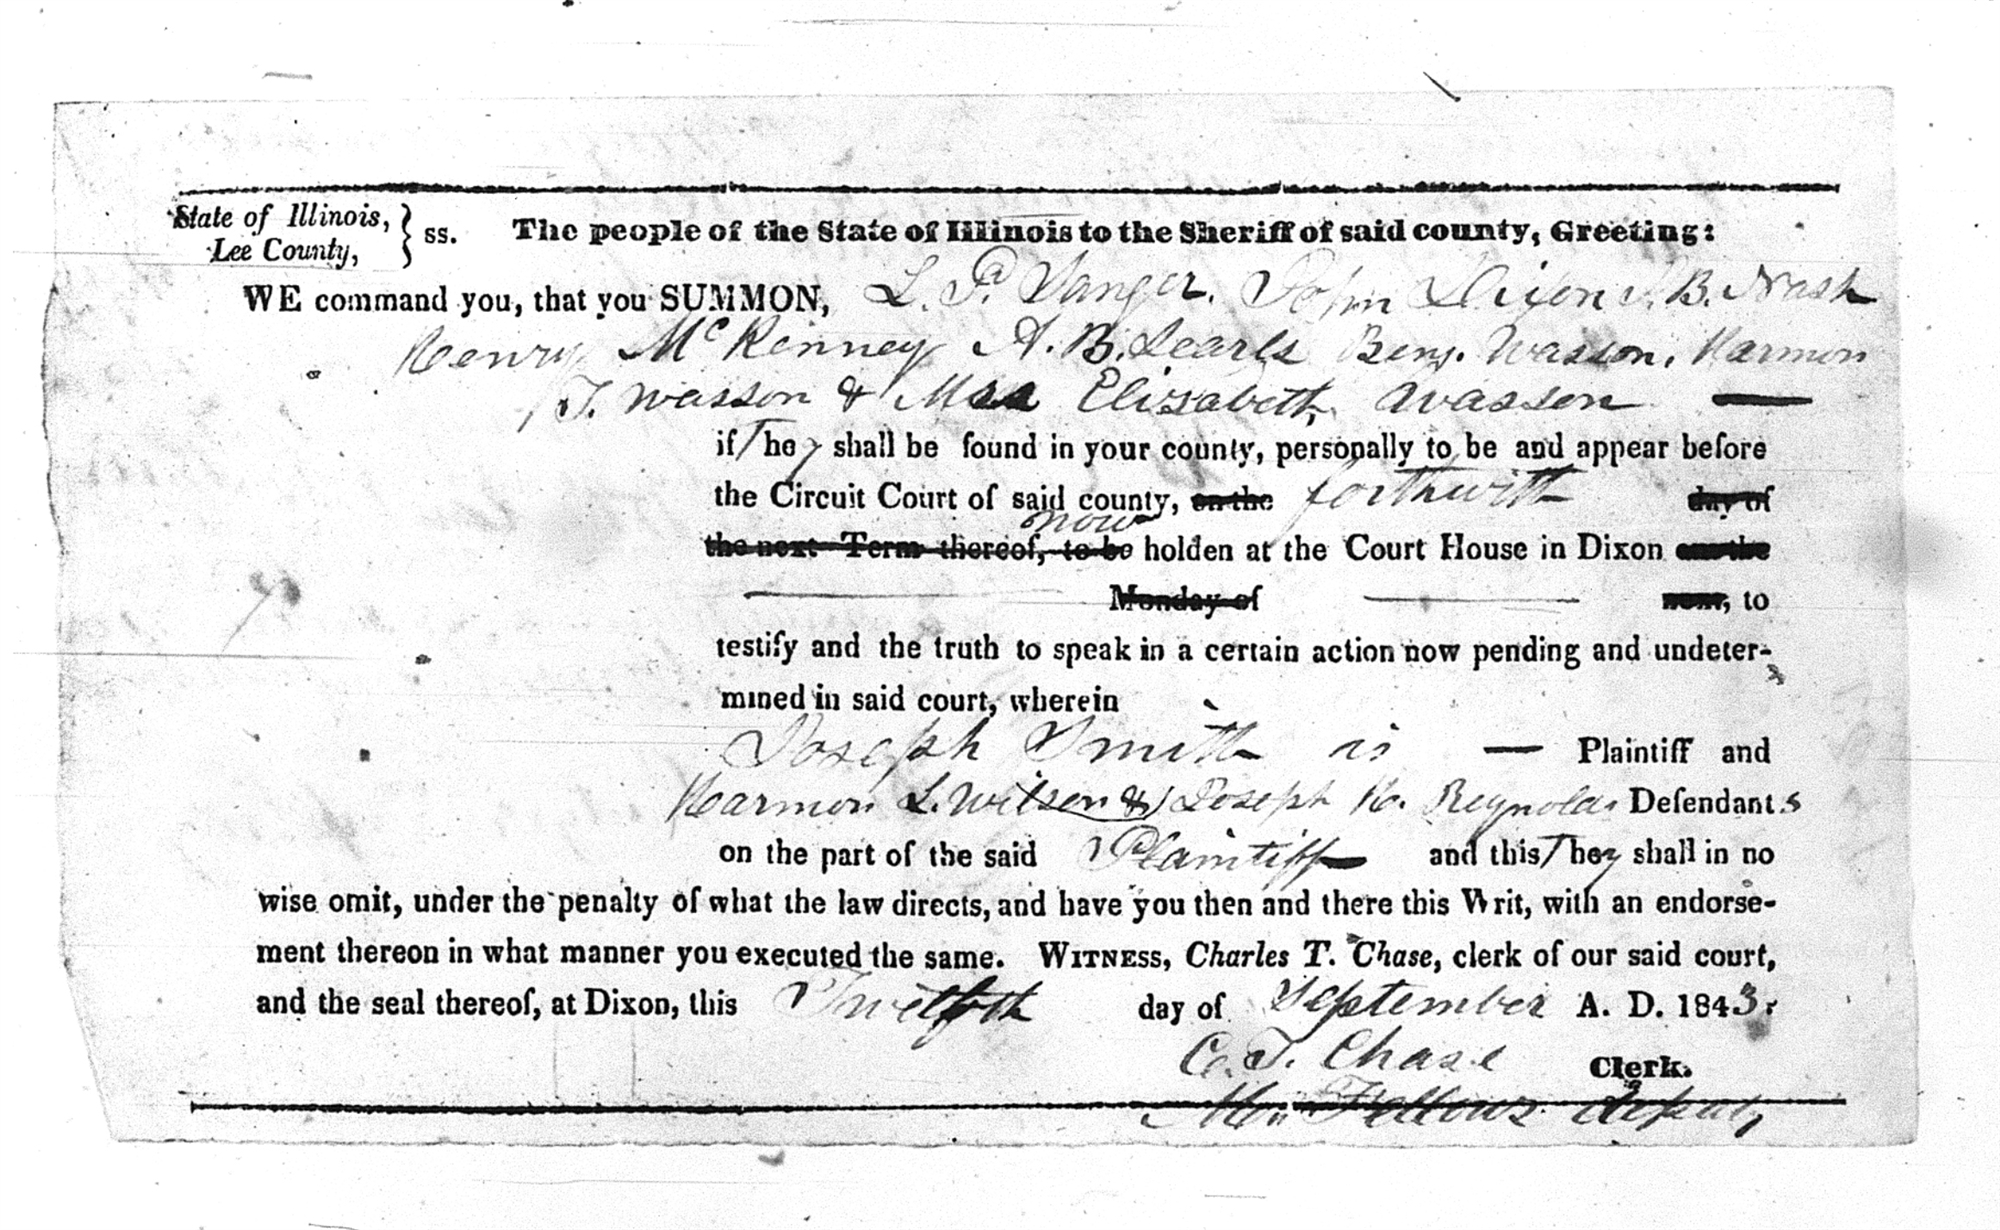 State of Illinois, } ss. The people of the State of Illinois to the Sheriff of said county, Greeting:
Lee County,
WE command you, that you SUMMON, L. P. Sanger. John Dixon J. B. Nash
Henry McKenney A. B. Searls Benj. Wasson, Harmon
T. Wasson & Mrs Elizabeth Wasson
if They shall be found in your county, personally to be and appear before
the Circuit Court of said county, on the forthwith day of
now
the next Term thereof, to be holden at the Court House in Dixon on the
Monday of next, to
testify and the truth to speak in a certain action now pending and undeter-
mined in said court, wherein
Joseph Smith is — Plaintiff and
Harmon L. Wilson & Joseph H. Reynolds Defendants
on the part of the said Plaintiff and this They shall in no
wise omit, under the penalty of what the law directs, and have you then and there this Writ, with an endorse-
ment thereon in what manner you executed the same. WITNESS, Charles T. Chase, clerk of our said court,
and the seal thereof, at Dixon, this Twelfth day of September A. D. 1843.
C. T. Chase Clerk.
Fellows deputy